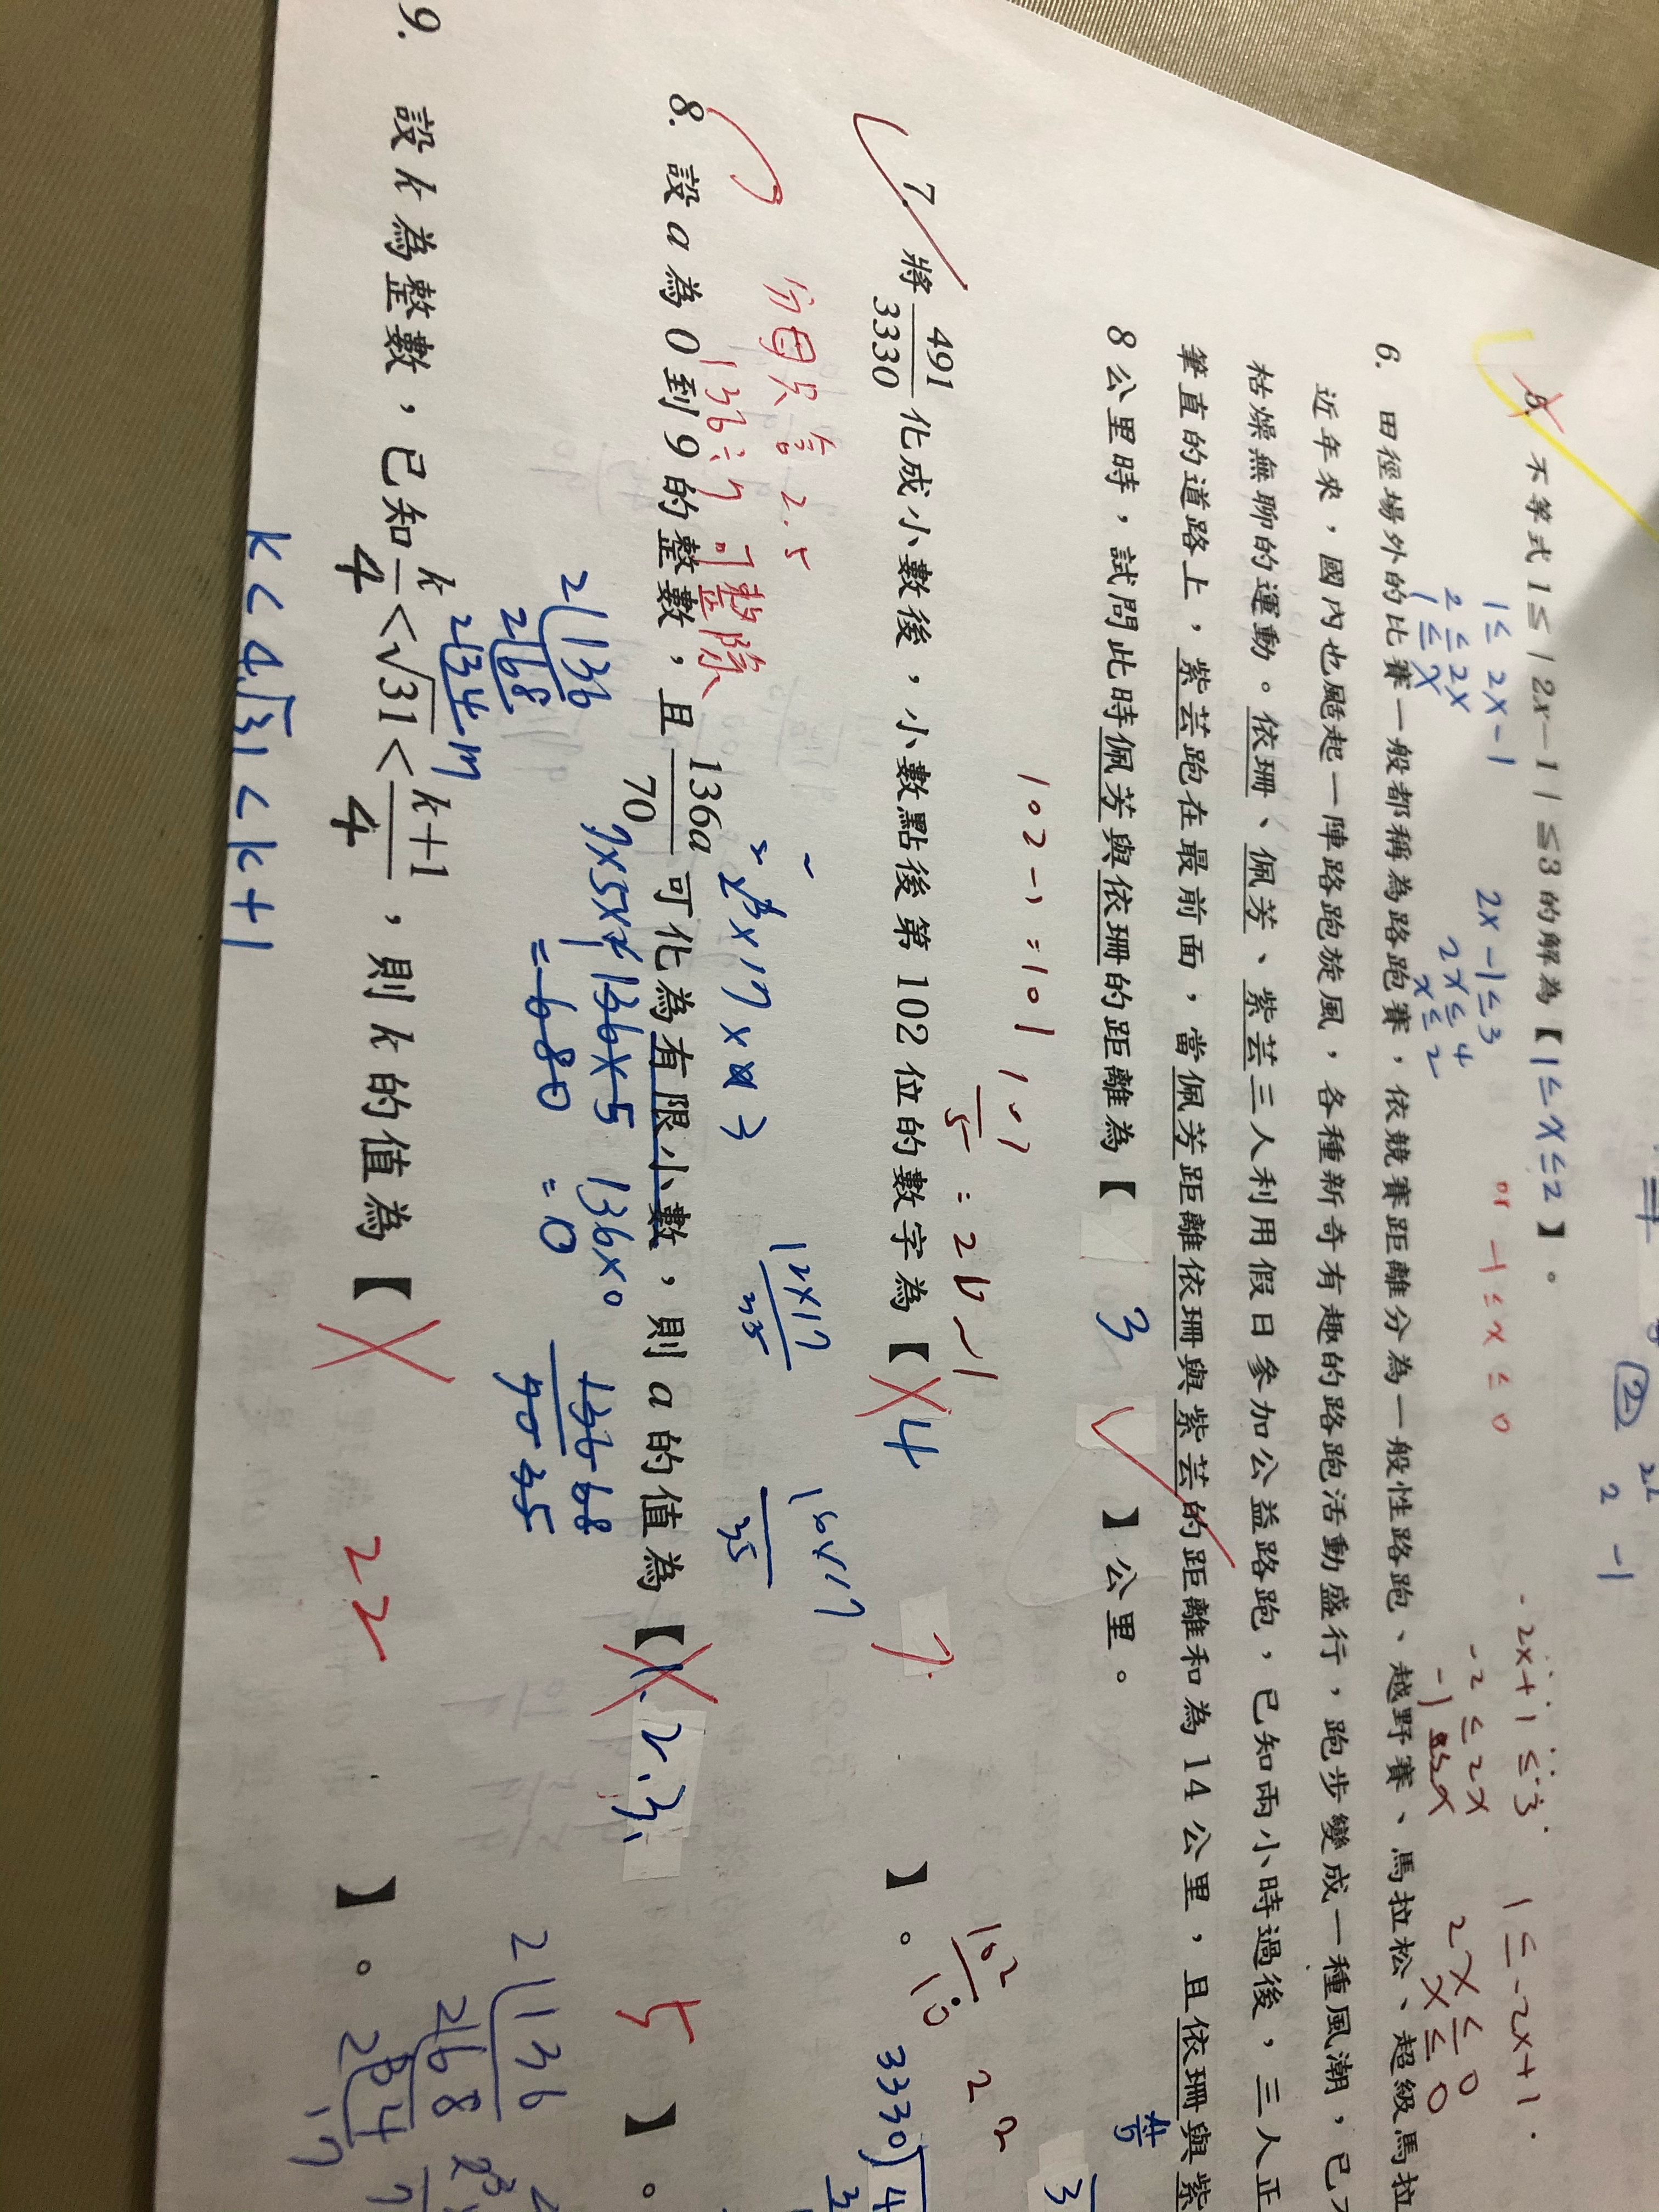 5. 不等式 1 ≤ | 2x − 1 | ≤ 3 的解為【 1 ≤ x ≤ 2 】。
1 ≤ 2x − 1
2 ≤ 2x
1 ≤ x
2x − 1 ≤ 3
2x ≤ 4
x ≤ 2
or −1 ≤ x ≤ 0
−2x+1 ≤ 3
−2 ≤ 2x
1 ≤ −2x+1
2x ≤ 0
x ≤ 0
6. 田徑場外的比賽一般都稱為路跑賽，依競賽距離分為一般性路跑、越野賽、馬拉松、超級馬拉
近年來，國內也颳起一陣路跑旋風，各種新奇有趣的路跑活動盛行，跑步變成一種風潮，已
枯燥無聊的運動。依珊、佩芳、紫芸三人利用假日參加公益路跑，已知兩小時過後，三人正
筆直的道路上，紫芸跑在最前面，當佩芳距離依珊與紫芸的距離和為 14 公里，且依珊與紫
8 公里時，試問此時佩芳與依珊的距離為【 3 】公里。
102−1=101
7. 將 491/3330 化成小數後，小數點後第 102 位的數字為【 4 7 】。
3330
分母只含 2.5
136÷7 可整除
8. 設 a 為 0 到 9 的整數，且 136a/70 可化為有限小數，則 a 的值為【 1、2、3、 5 】。
7×5×2
136×5
=680
136×0
=0
12×17
35
2|136
2|68
2|34
17
136 68
70 35
9. 設 k 為整數，已知 k/4 < √31 < (k+1)/4，則 k 的值為【 22 】。
k < 4√31 < k+1
2|136
2|68
2|34
17